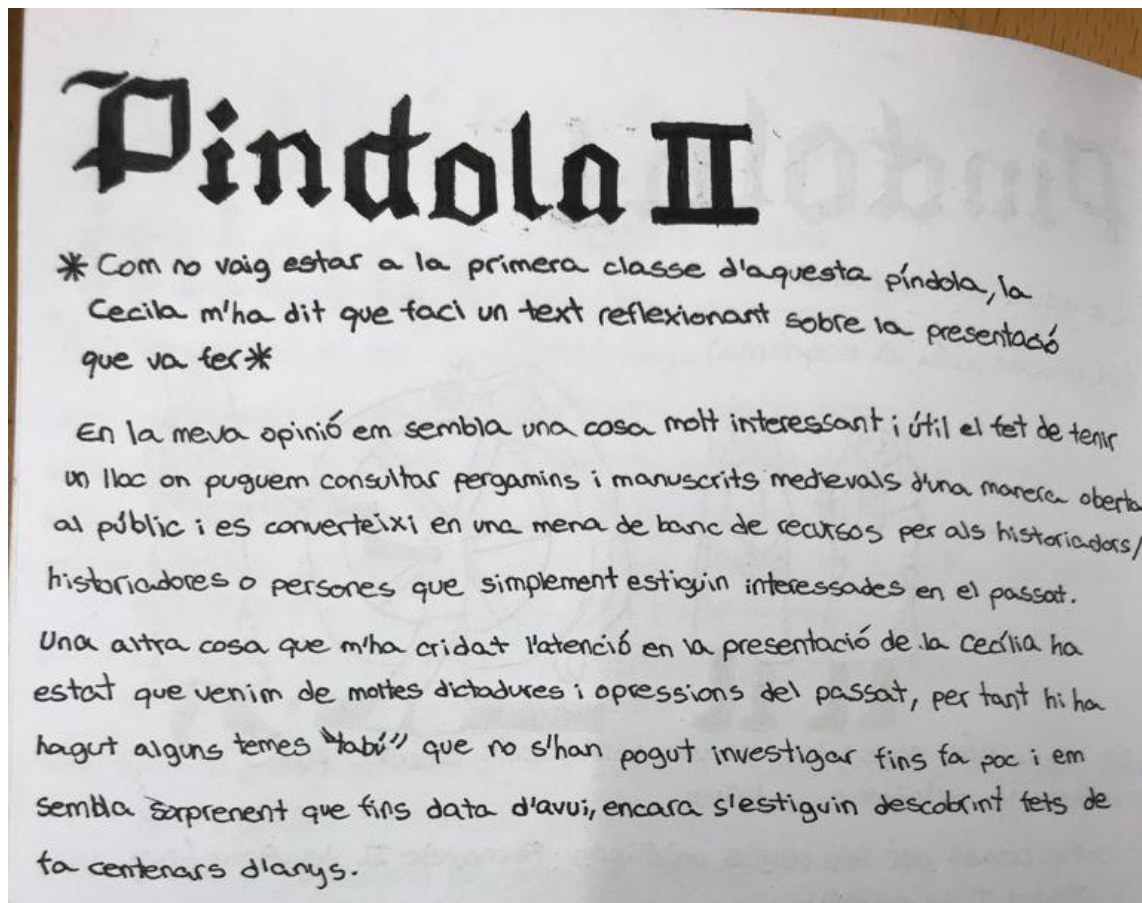 Pindola II
* Com no vaig estar a la primera classe d'aquesta píndola, la
Cecila m'ha dit que faci un text reflexionant sobre la presentació
que va fer*
En la meva opinió em sembla una cosa molt interessant i útil el fet de tenir
un lloc on puguem consultar pergamins i manuscrits medievals d'una manera oberta
al públic i es converteixi en una mena de banc de recursos per als historiadors/
historiadores o persones que simplement estiguin interessades en el passat.
Una altra cosa que m'ha cridat l'atenció en la presentació de la Cecília ha
estat que venim de moltes dictadures i opressions del passat, per tant hi ha
hagut alguns temes "tabú" que no s'han pogut investigar fins fa poc i em
sembla sorprenent que fins data d'avui, encara s'estiguin descobrint fets de
fa centenars d'anys.